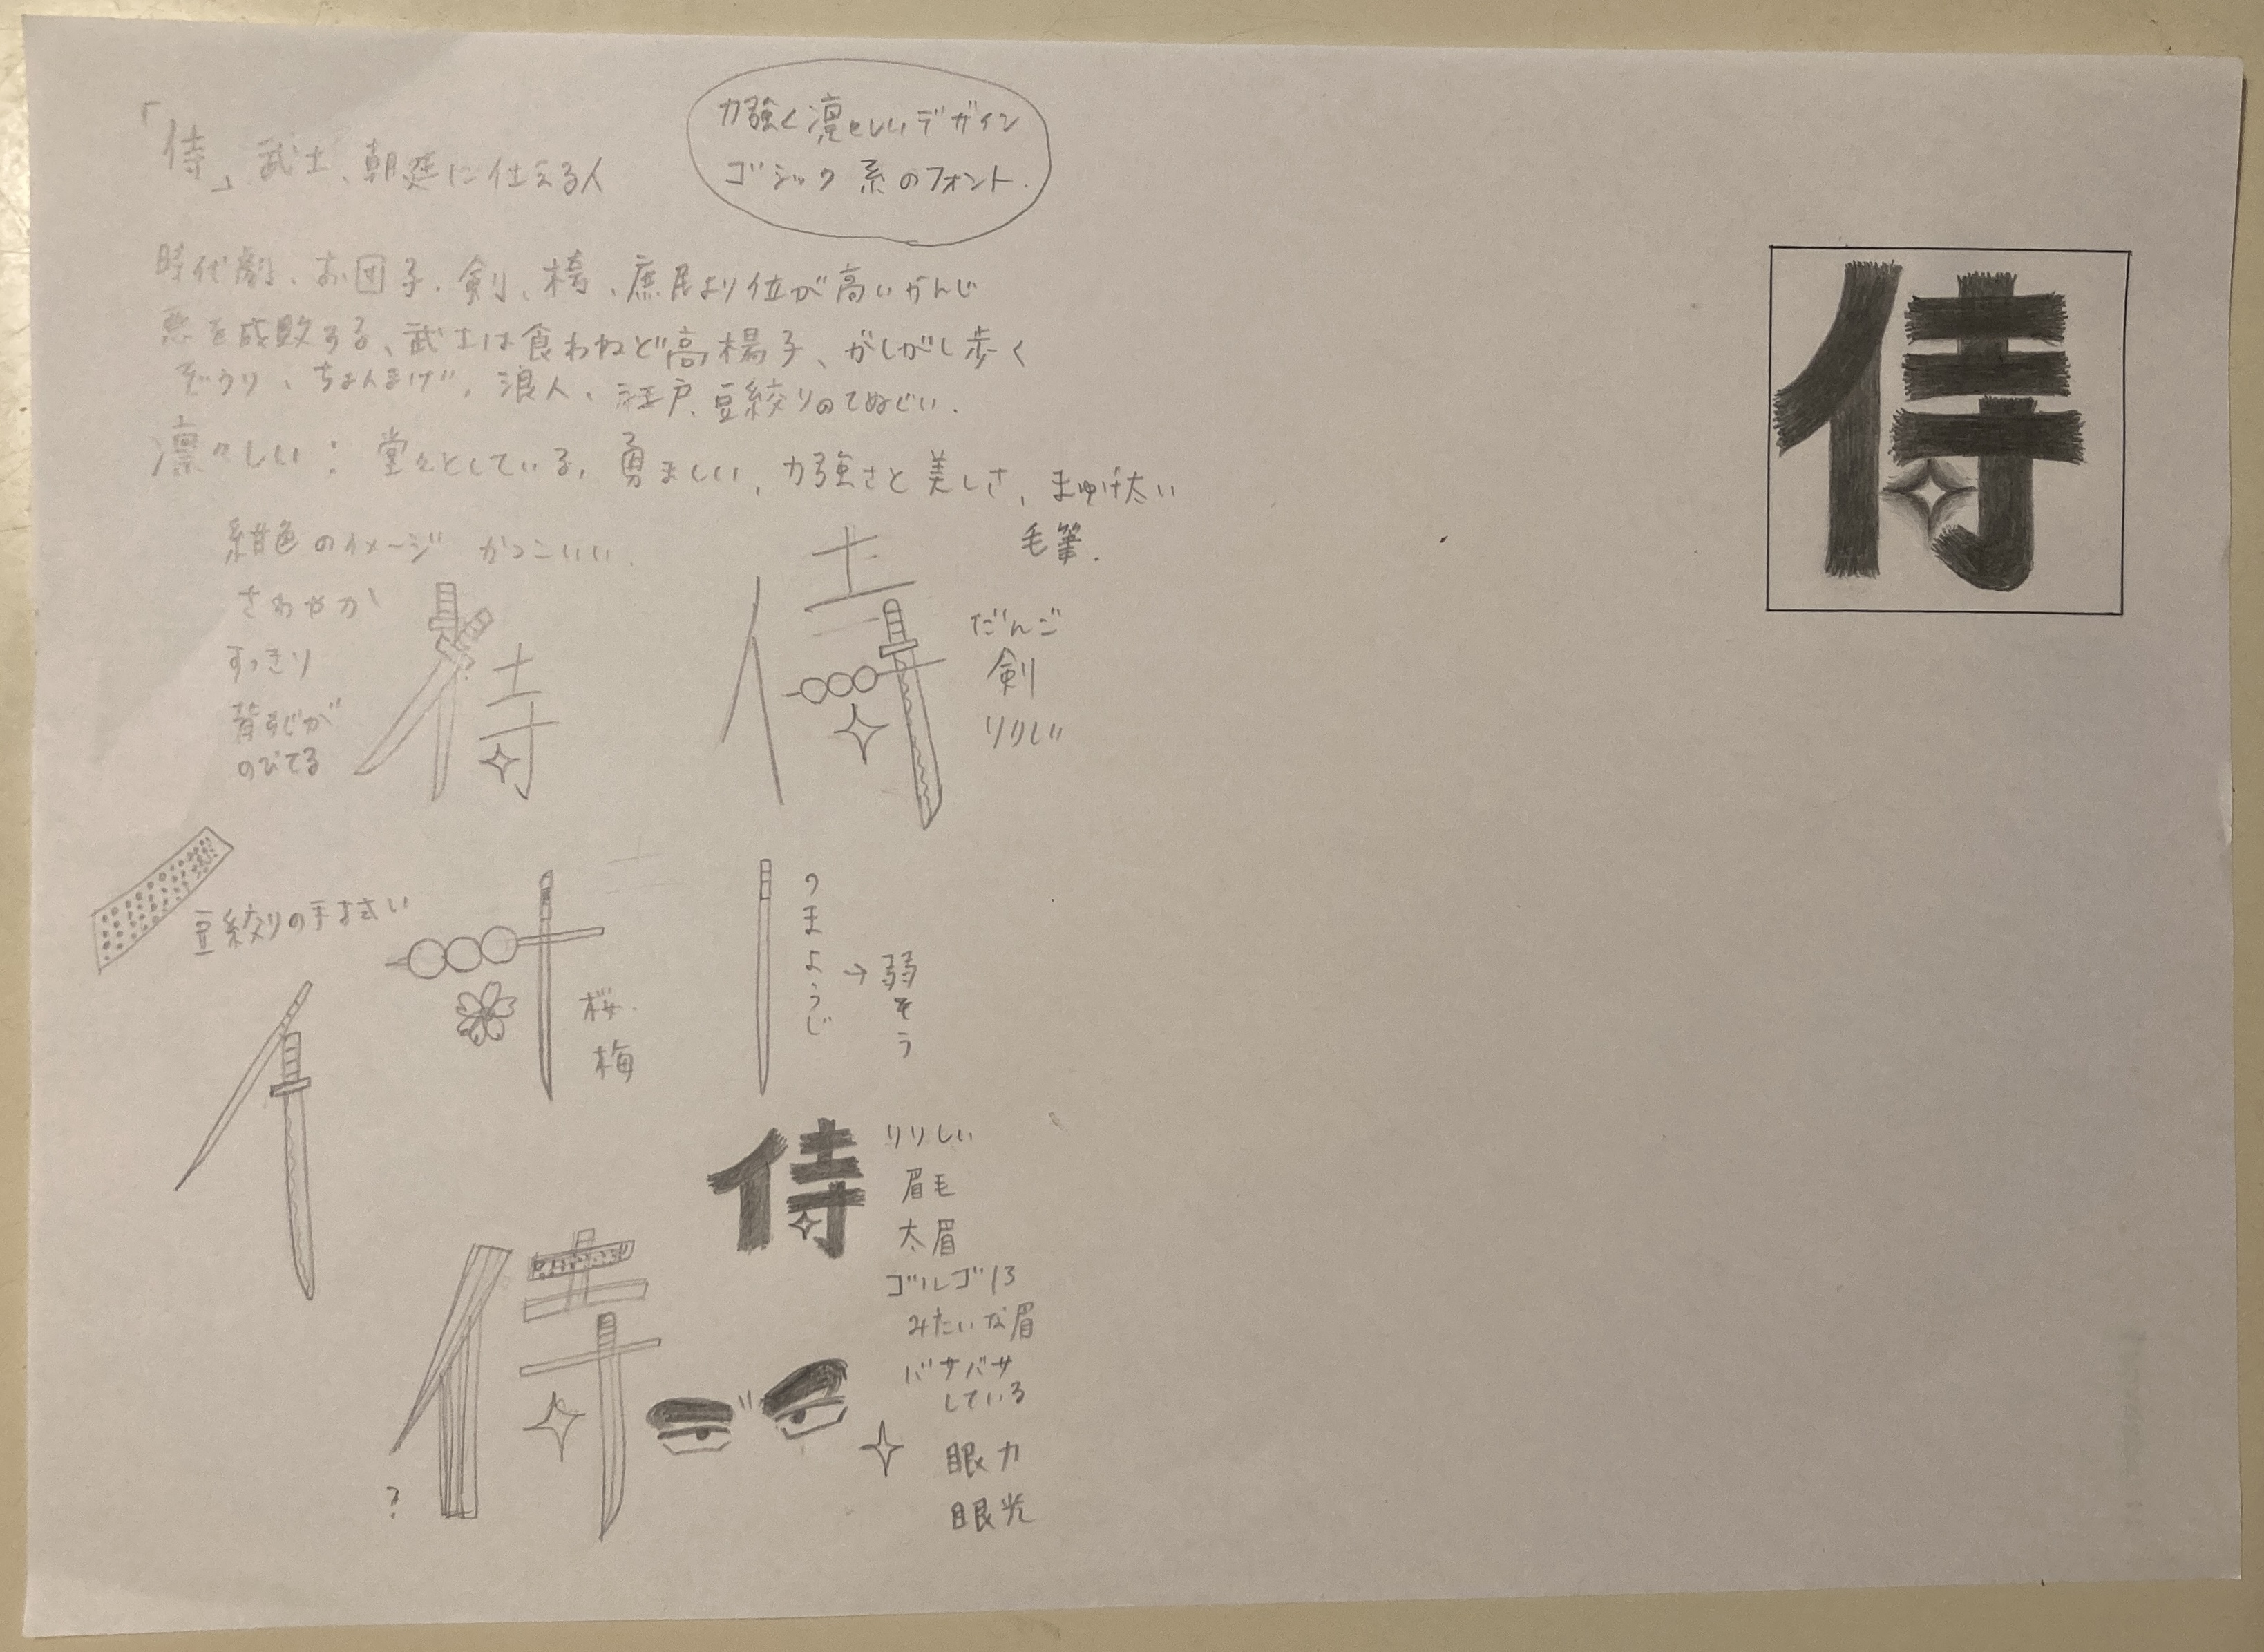 「侍」武士、朝廷に仕える人
力強く凛々しいデザイン
ゴシック系のフォント.
時代劇、お団子、剣、袴、庶民より位が高いかんじ
悪を成敗する、武士は食わねど高楊子、がしがし歩く
ぞうり、ちょんまげ、浪人、江戸、豆絞りのてぬぐい.
凛々しい：堂々としている、勇ましい、力強さと美しさ、まゆげ太い
毛筆.
紺色のイメージ かっこいい.
さわやか
すっきり
背すじが
のびてる
侍
侍
だんご
剣
りりしい
豆絞りの手ぬぐい
桜.
梅
つまようじ
→弱そう
侍
りりしい
眉毛
太眉
ゴルゴ13
みたいな眉
バサバサ
している
眼力
眼光
侍
?
侍